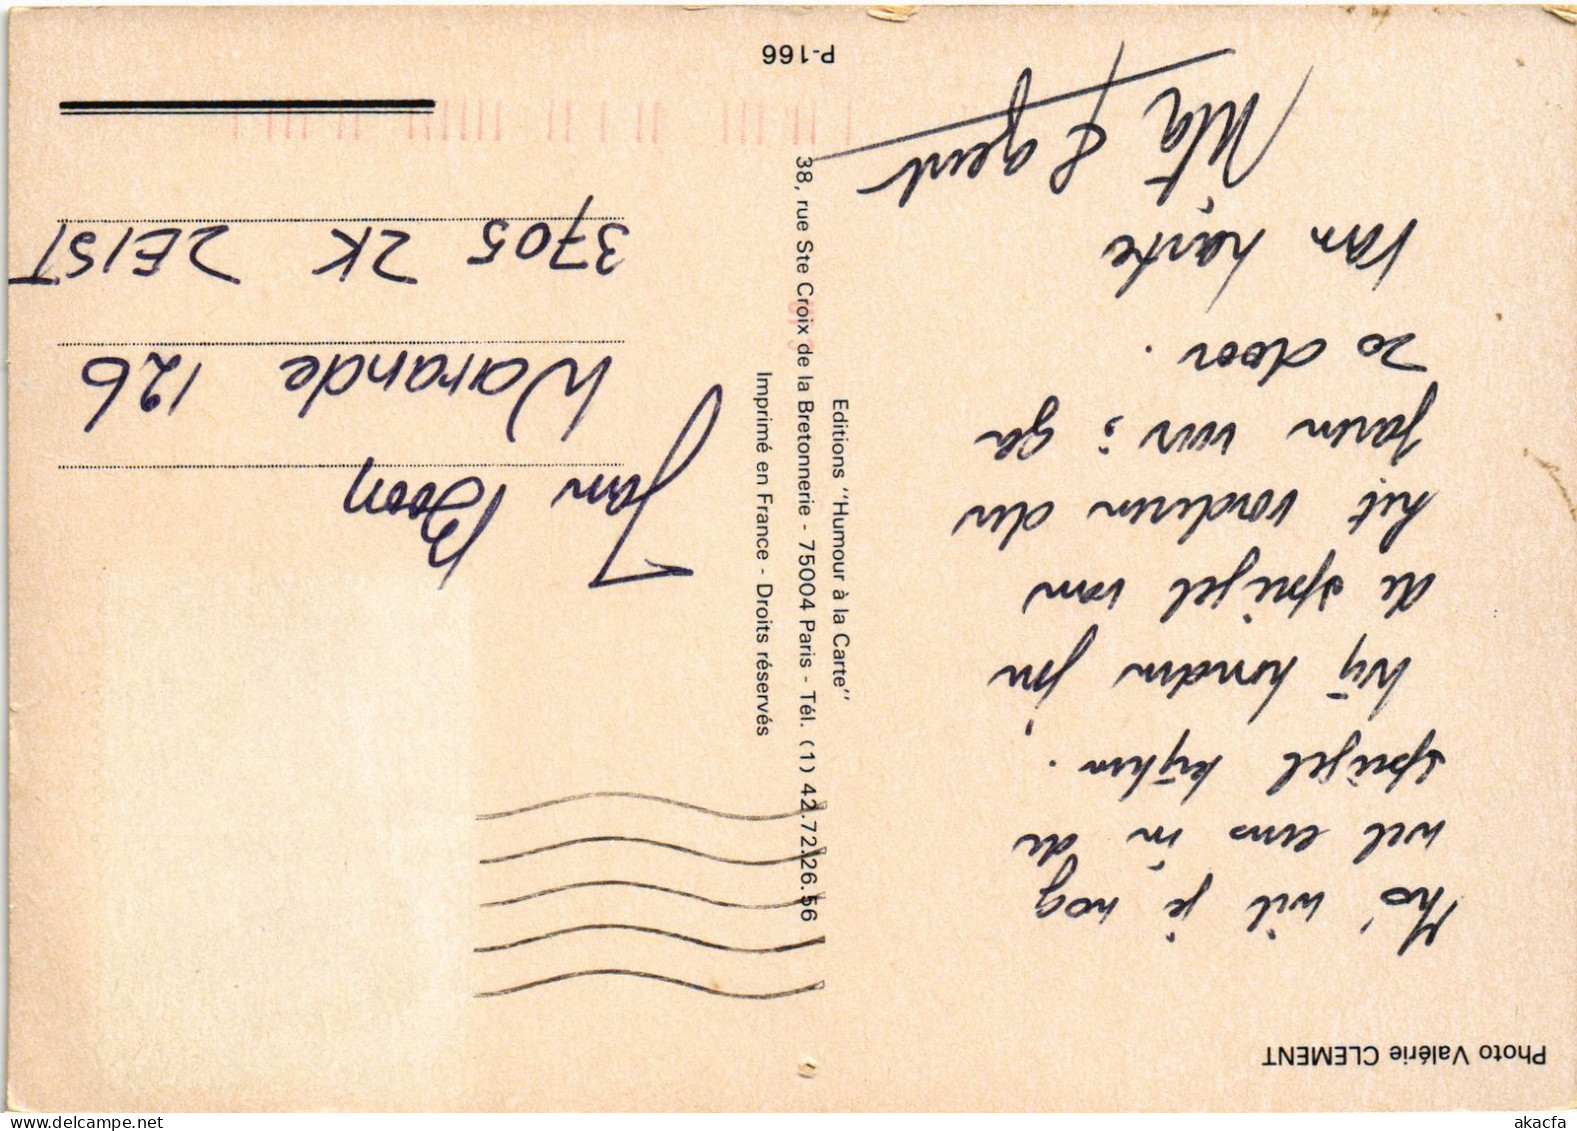 Photo Valérie CLEMENT
wil je nog
wel eens in de
spiegel kijken.
Wij houden jou
de spiegel van
het vorderen der
jaren voor; ga
zo door.
Van harte
Editions "Humour à la Carte"
38, rue Ste Croix de la Bretonnerie - 75004 Paris - Tél. (1) 42.72.26.56
Imprimé en France - Droits réservés
P-166
Jan Boon
Warande 126
3705 ZK ZEIST
akacfa